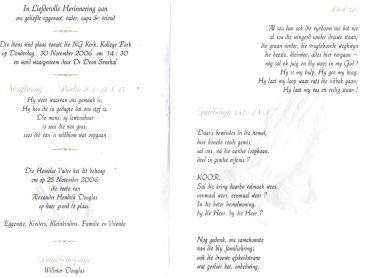 In Liefdevolle Herinnering aan
ons geliefde eggenoot, vader, oupa & vriend
Die diens vind plaas vanuit die NG Kerk, Kollege Park
op Donderdag, 30 November 2006 om 14 : 30
en word waargeneem deur Dr Deon Snerhal
Skriflesing - Psalm 103 : 14 & 15
Hy weet waarvan ons gemaak is,
Hy hou dit in gedagte dat ons stof is.
Die mens, sy lewensduur
is soos dié van gras;
soos dié van 'n veldblom wat oopgaan
Die Hemelse Vader het dit behaag
om op 25 November 2006
die siele van
Alexander Hendrik Douglas
op haar grond te plaas.
Eggenote, Kinders, Kleinkinders, Familie en Vriende
Willmar Douglas
Lied
Al sou hoe ook die rotsbome nie bot nie
al sou die wingerd sonder druiwe staan;
die graan verdor, die vrugtelaande wegkwyn
die beeste, kleinvee, alles hier vergaan -
nóg sal ek juig en bly wees in my God !
Hy is my hulp, Hy gee my krag.
Hy laat my loop waar rots die ribbok gaan;
Hy laat my vas en veilig staan !
Halleluja 487 : 1 & 3
Daar's hemelse in die hemel,
hier benede reeds gemis;
sal ons, ná die aardse loopbaan,
deel in Godse erfenis ?
KOOR:
Sal die kring daarbo volmaak wees,
eenmaal weer, eenmaal weer ?
In die beter hemelwoning,
by die Heer, by die Heer ?
Nog gedenk, ons saamkomste
van die bly familiekring;
ook die droewe afskeidstrane
wat gevloei het, onbedwing.